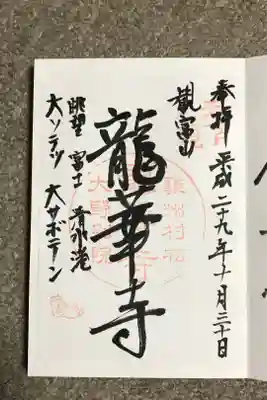 奉拝 平成二十九年十月三十日
観富山
龍華寺
眺望 富士 清水港
大ソテツ 大サボテン